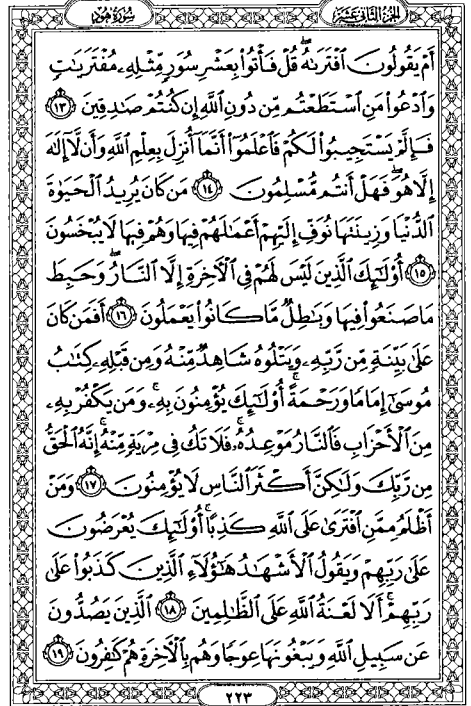 الجزء الثاني عشر
سورة هود
أَمْ يَقُولُونَ ٱفْتَرَىٰهُۖ قُلْ فَأْتُوا۟ بِعَشْرِ سُوَرٍ مِّثْلِهِۦ مُفْتَرَيَٰتٍ
وَٱدْعُوا۟ مَنِ ٱسْتَطَعْتُم مِّن دُونِ ٱللَّهِ إِن كُنتُمْ صَٰدِقِينَ ١٣
فَإِلَّمْ يَسْتَجِيبُوا۟ لَكُمْ فَٱعْلَمُوٓا۟ أَنَّمَآ أُنزِلَ بِعِلْمِ ٱللَّهِ وَأَن لَّآ إِلَٰهَ
إِلَّا هُوَۖ فَهَلْ أَنتُم مُّسْلِمُونَ ١٤ مَن كَانَ يُرِيدُ ٱلْحَيَوٰةَ
ٱلدُّنْيَا وَزِينَتَهَا نُوَفِّ إِلَيْهِمْ أَعْمَٰلَهُمْ فِيهَا وَهُمْ فِيهَا لَا يُبْخَسُونَ
١٥ أُو۟لَٰٓئِكَ ٱلَّذِينَ لَيْسَ لَهُمْ فِى ٱلْءَاخِرَةِ إِلَّا ٱلنَّارُۖ وَحَبِطَ
مَا صَنَعُوا۟ فِيهَا وَبَٰطِلٌ مَّا كَانُوا۟ يَعْمَلُونَ ١٦ أَفَمَن كَانَ
عَلَىٰ بَيِّنَةٍ مِّن رَّبِّهِۦ وَيَتْلُوهُ شَاهِدٌ مِّنْهُ وَمِن قَبْلِهِۦ كِتَٰبُ
مُوسَىٰٓ إِمَامًا وَرَحْمَةًۚ أُو۟لَٰٓئِكَ يُؤْمِنُونَ بِهِۦۚ وَمَن يَكْفُرْ بِهِۦ
مِنَ ٱلْأَحْزَابِ فَٱلنَّارُ مَوْعِدُهُۥۚ فَلَا تَكُ فِى مِرْيَةٍ مِّنْهُۚ إِنَّهُ ٱلْحَقُّ
مِن رَّبِّكَ وَلَٰكِنَّ أَكْثَرَ ٱلنَّاسِ لَا يُؤْمِنُونَ ١٧ وَمَنْ
أَظْلَمُ مِمَّنِ ٱفْتَرَىٰ عَلَى ٱللَّهِ كَذِبًاۚ أُو۟لَٰٓئِكَ يُعْرَضُونَ
عَلَىٰ رَبِّهِمْ وَيَقُولُ ٱلْأَشْهَٰدُ هَٰٓؤُلَآءِ ٱلَّذِينَ كَذَبُوا۟ عَلَىٰ
رَبِّهِمْۚ أَلَا لَعْنَةُ ٱللَّهِ عَلَى ٱلظَّٰلِمِينَ ١٨ ٱلَّذِينَ يَصُدُّونَ
عَن سَبِيلِ ٱللَّهِ وَيَبْغُونَهَا عِوَجًا وَهُم بِٱلْءَاخِرَةِ هُمْ كَٰفِرُونَ ١٩
٢٢٣